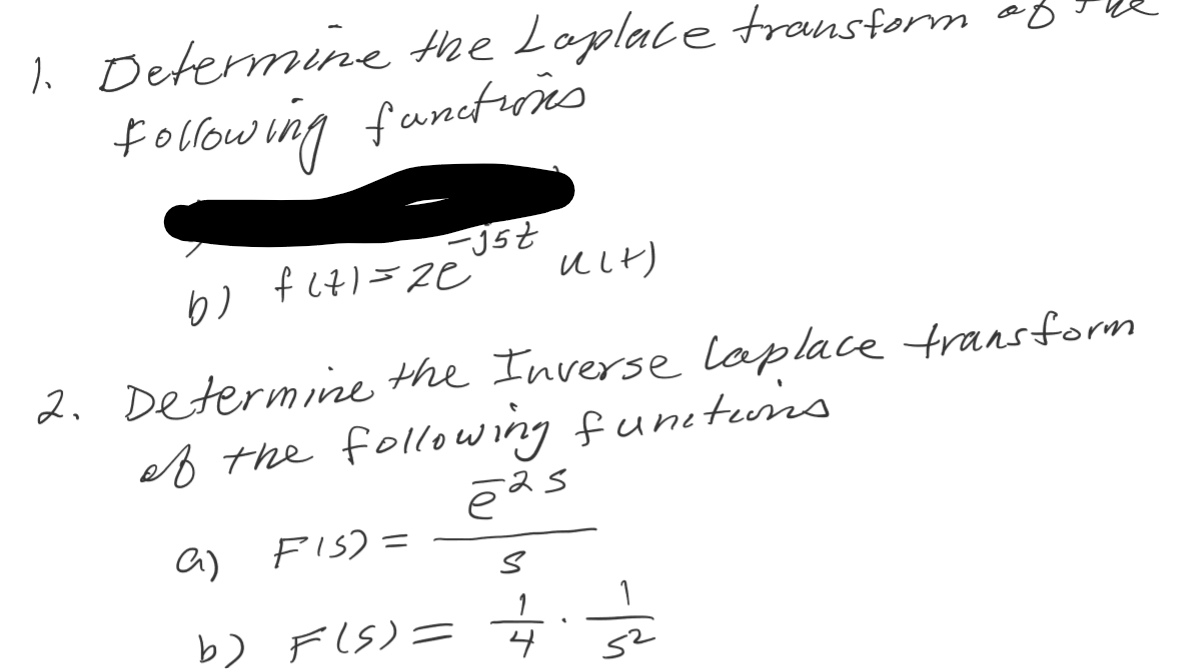 1. Determine the Laplace transform of the
following functions
b) f(t) = 2e^{-j5t} u(t)
2. Determine the Inverse laplace transform
of the following functions
a) F(s) = e^{-2s} / s
b) F(s) = 1/4 · 1/s^2